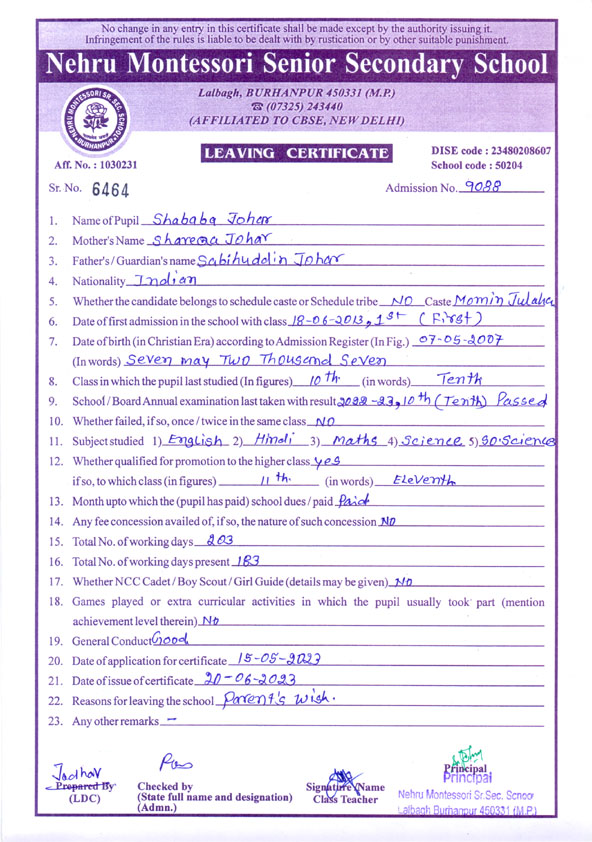 No change in any entry in this certificate shall be made except by the authority issuing it.
Infringement of the rules is liable to be dealt with by rustication or by other suitable punishment.
Nehru Montessori Senior Secondary School
Lalbagh, BURHANPUR 450331 (M.P.)
☎ (07325) 243440
(AFFILIATED TO CBSE, NEW DELHI)
NEHRU MONTESSORI SR. SEC. SCHOOL
BURHANPUR
LEAVING CERTIFICATE
DISE code : 23480208607
Aff. No. : 1030231
School code : 50204
Sr. No. 6464
Admission No. 9088
1. Name of Pupil Shababa Johar
2. Mother's Name Shareqa Johar
3. Father's / Guardian's name Sabihuddin Johar
4. Nationality Indian
5. Whether the candidate belongs to schedule caste or Schedule tribe NO Caste Momin Julaha
6. Date of first admission in the school with class 18-06-2013, 1st (First)
7. Date of birth (in Christian Era) according to Admission Register (In Fig.) 07-05-2007
(In words) Seven may Two Thousand Seven
8. Class in which the pupil last studied (In figures) 10th (in words) Tenth
9. School / Board Annual examination last taken with result 2022-23, 10th (Tenth) Passed
10. Whether failed, if so, once / twice in the same class NO
11. Subject studied 1) English 2) Hindi 3) Maths 4) Science 5) SO.Science
12. Whether qualified for promotion to the higher class yes
if so, to which class (in figures) 11th. (in words) Eleventh
13. Month upto which the (pupil has paid) school dues / paid Paid
14. Any fee concession availed of, if so, the nature of such concession NO
15. Total No. of working days 203
16. Total No. of working days present 183
17. Whether NCC Cadet / Boy Scout / Girl Guide (details may be given) NO
18. Games played or extra curricular activities in which the pupil usually took part (mention
achievement level therein) NO
19. General Conduct Good
20. Date of application for certificate 15-05-2023
21. Date of issue of certificate 20-06-2023
22. Reasons for leaving the school Parent's wish.
23. Any other remarks —
Jadhav
Prepared By
(LDC)
Checked by
(State full name and designation)
(Admn.)
Signature / Name
Class Teacher
Principal
Principal
Nehru Montessori Sr.Sec. School
Lalbagh Burhanpur 450331 (M.P.)